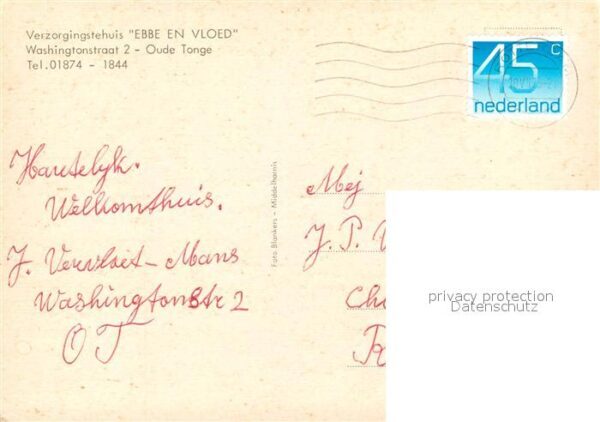 Verzorgingstehuis "EBBE EN VLOED"
Washingtonstraat 2 - Oude Tonge
Tel.01874 - 1844
45 c
nederland
Hartelyk.
Welkomthuis.
J. Vervloet-Mans
Washingtonstr 2
OT
Foto Blankers - Middelharnis
Mej
J. P. V
Ch
privacy protection
Datenschutz